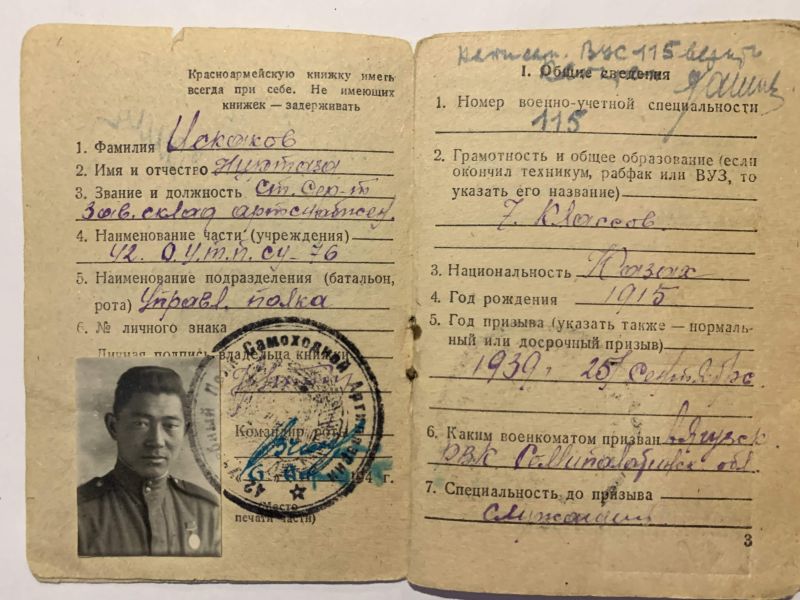 Красноармейскую книжку иметь
всегда при себе. Не имеющих
книжек — задерживать
1. Фамилия Искаков
2. Имя и отчество
3. Звание и должность Ст. Сер-т
Зав. склад артснабжен.
4. Наименование части (учреждения)
42. О.У.т.п. СУ-76
5. Наименование подразделения (батальон,
рота) Управл. полка
6. № личного знака
Личная подпись владельца книжки
Командир роты
194 г.
(Место
печати части)
42 Самоходной Артиллерии
ВУС 115
I. Общие сведения
1. Номер военно-учетной специальности
115
2. Грамотность и общее образование (если
окончил техникум, рабфак или ВУЗ, то
указать его название)
7. Классов
3. Национальность Казах
4. Год рождения 1915
5. Год призыва (указать также — нормаль-
ный или досрочный призыв)
1939 г. 25 Сентябрь
6. Каким военкоматом призван Аягузск
РВК Семипалатинск обл.
7. Специальность до призыва
служащий
3